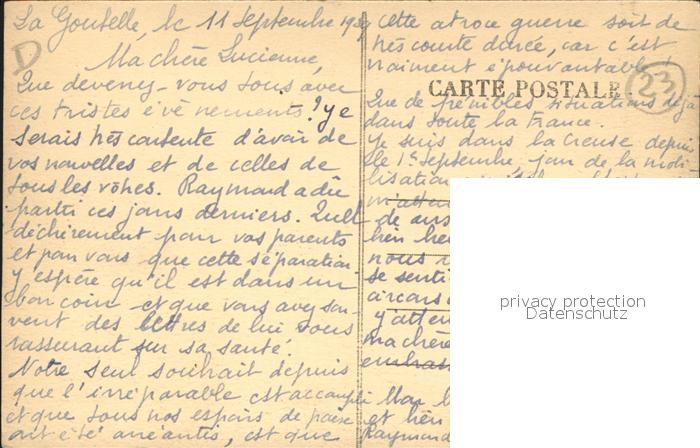 La Goutelle, le 11 Septembre 1939
Ma chère Lucienne,
Que devenez-vous tous avec
ces tristes évènements? Je
serais très contente d'avoir de
vos nouvelles et de celles de
tous les vôtres. Raymond a dû
partir ces jours derniers. Quel
déchirement pour vos parents
et pour vous que cette séparation.
J'espère qu'il est dans un
bon coin et que vous avez sou-
vent des lettres de lui vous
rassurant sur sa santé.
Notre seul souhait depuis
que l'irréparable est accompli
et que tous nos espoirs de paix
ont été anéantis, est que
cette atroce guerre soit de
très courte durée, car c'est
vraiment épouvantable!
CARTE POSTALE
23
Que de pénibles situations déjà
dans toute la France.
Je suis dans la Creuse depuis
le 1er Septembre, jour de la mobi-
lisation
m'atten
de
bien heu
nous
se senti
J'atten
ma chère
embras
et bien
Raymond
D
privacy protection
Datenschutz